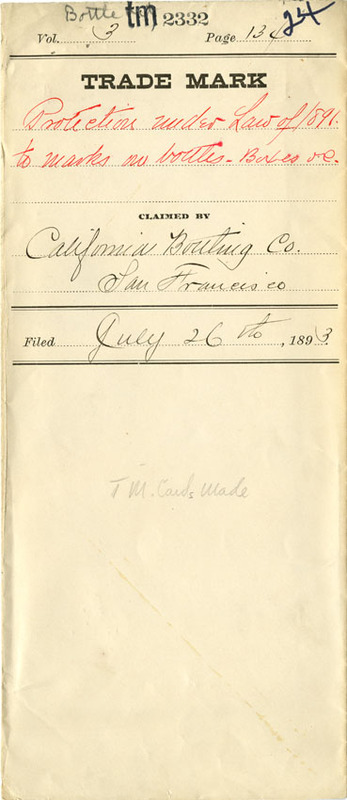 Bottle tm 2332 24
Vol. 3 Page 134
TRADE MARK
Protection under Law of 1891.
to marks on bottles - Boxes &c.
CLAIMED BY
California Bottling Co.
San Francisco
Filed July 26th, 1893
T M. Cards Made